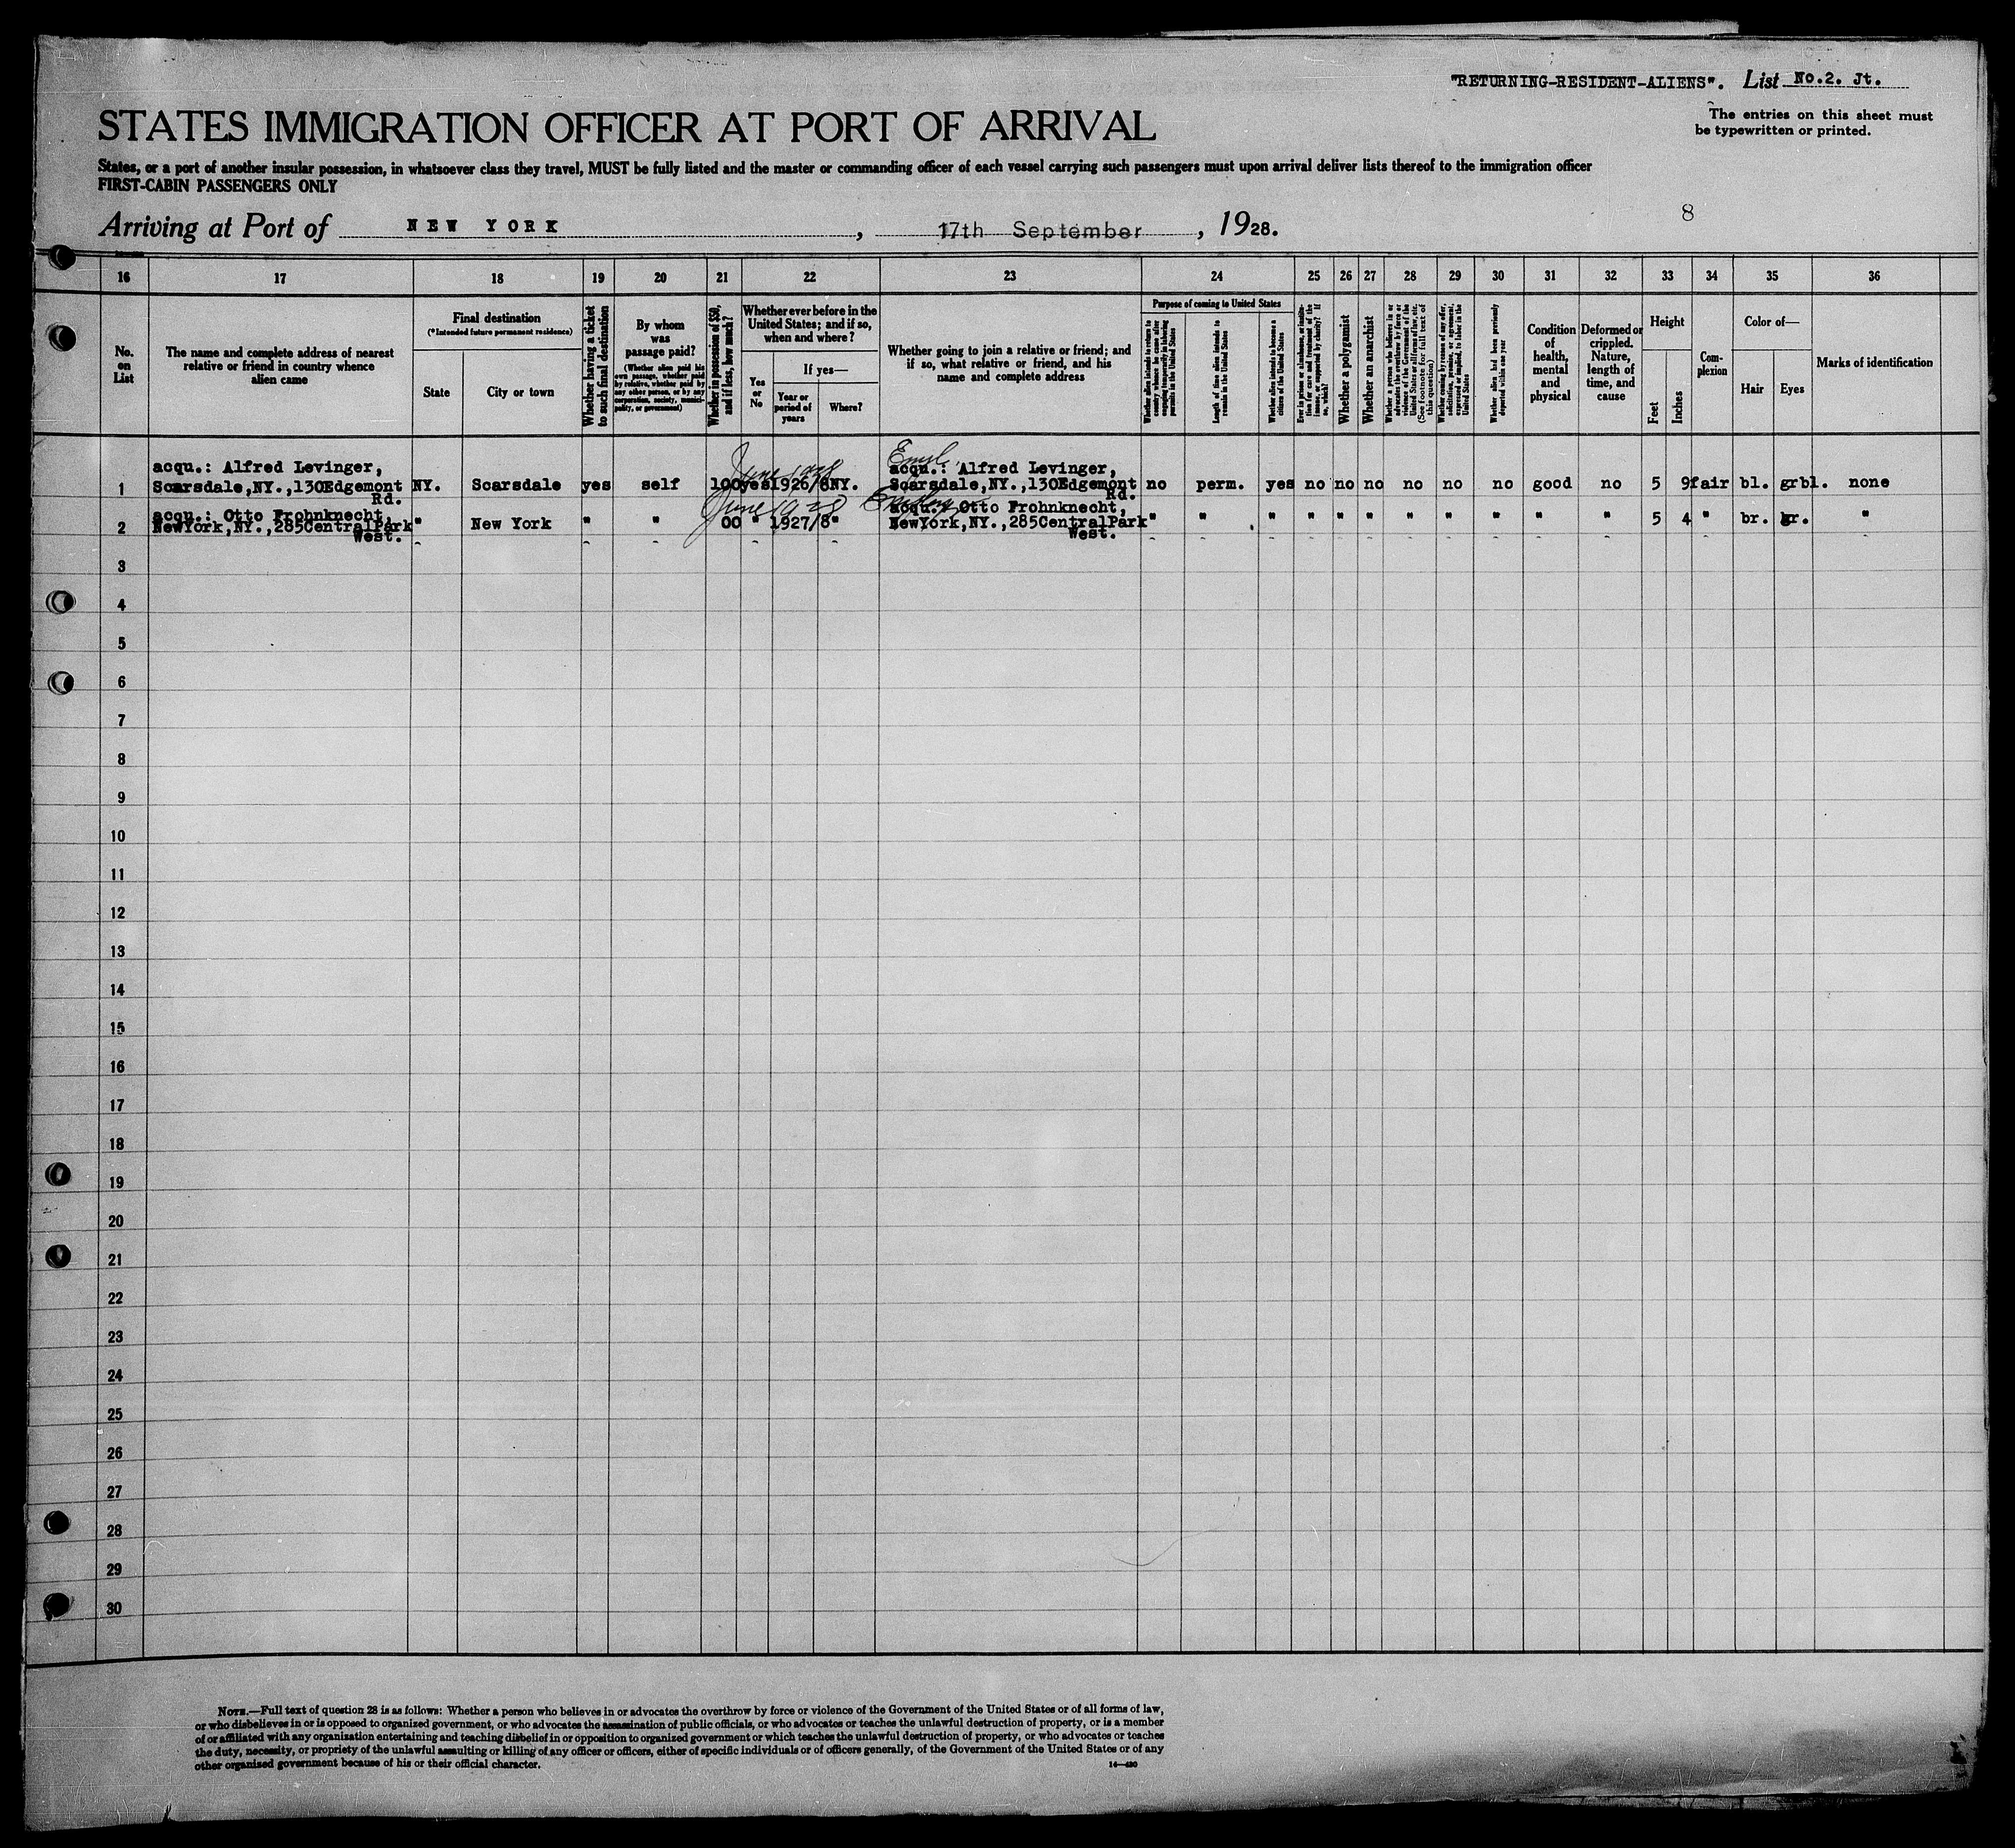 "RETURNING-RESIDENT-ALIENS". List No.2. Jt.
STATES IMMIGRATION OFFICER AT PORT OF ARRIVAL
The entries on this sheet must
be typewritten or printed.
States, or a port of another insular possession, in whatsoever class they travel, MUST be fully listed and the master or commanding officer of each vessel carrying such passengers must upon arrival deliver lists thereof to the immigration officer
FIRST-CABIN PASSENGERS ONLY
Arriving at Port of NEW YORK, 17th September, 1928.
8
16 17 18 19 20 21 22 23 24 25 26 27 28 29 30 31 32 33 34 35 36
No. on List
The name and complete address of nearest
relative or friend in country whence
alien came
Final destination
(*Intended future permanent residence)
State
City or town
Whether having a ticket
to such final destination
By whom
was
passage paid?
(Whether alien paid his
own passage, whether paid
by relative, whether paid by
any other person, or by any
corporation, society, munici-
pality, or government)
Whether in possession of $50,
and if less, how much?
Whether ever before in the
United States; and if so,
when and where?
Yes
or
No
If yes—
Year or
period of
years
Where?
Whether going to join a relative or friend; and
if so, what relative or friend, and his
name and complete address
Purpose of coming to United States
Whether alien intends to return to
country whence he came after
engaging temporarily in laboring
pursuits in the United States
Length of time alien intends to
remain in the United States
Whether alien intends to become a
citizen of the United States
Ever in prison or almshouse, or institu-
tion for care and treatment of the
insane, or supported by charity? If
so, which?
Whether a polygamist
Whether an anarchist
Whether a person who believes in or
advocates the overthrow by force or
violence of the Government of the
United States or all forms of law, etc.
(See footnote for full text of
this question)
Whether coming by reason of any offer,
solicitation, promise, or agreement,
expressed or implied, to labor in the
United States
Whether alien had been previously
deported within one year
Condition
of
health,
mental
and
physical
Deformed or
crippled.
Nature,
length of
time, and
cause
Height
Feet
Inches
Com-
plexion
Color of—
Hair
Eyes
Marks of identification
June 1928
Emyl
acqu.: Alfred Levinger, acqu.: Alfred Levinger,
1 Scarsdale,NY.,130Edgemont NY. Scarsdale yes self 100 yes 1926/8 NY. Scarsdale,NY.,130Edgemont no perm. yes no no no no no no good no 5 9 fair bl. grbl. none
Rd. Rd.
June 1928
acqu.: Otto Frohnknecht, acqu.: Otto Frohnknecht,
2 NewYork,NY.,285CentralPark " New York " " 00 " 1927/8 " NewYork,NY.,285CentralPark " " " " " " " " " " " 5 4 " br. gr. "
West. West.
3
4
5
6
7
8
9
10
11
12
13
14
15
16
17
18
19
20
21
22
23
24
25
26
27
28
29
30
NOTE.—Full text of question 28 is as follows: Whether a person who believes in or advocates the overthrow by force or violence of the Government of the United States or of all forms of law,
or who disbelieves in or is opposed to organized government, or who advocates the assassination of public officials, or who advocates or teaches the unlawful destruction of property, or is a member
of or affiliated with any organization entertaining and teaching disbelief in or opposition to organized government or which teaches the unlawful destruction of property, or who advocates or teaches
the duty, necessity, or propriety of the unlawful assaulting or killing of any officer or officers, either of specific individuals or of officers generally, of the Government of the United States or of any
other organized government because of his or their official character.
14—430